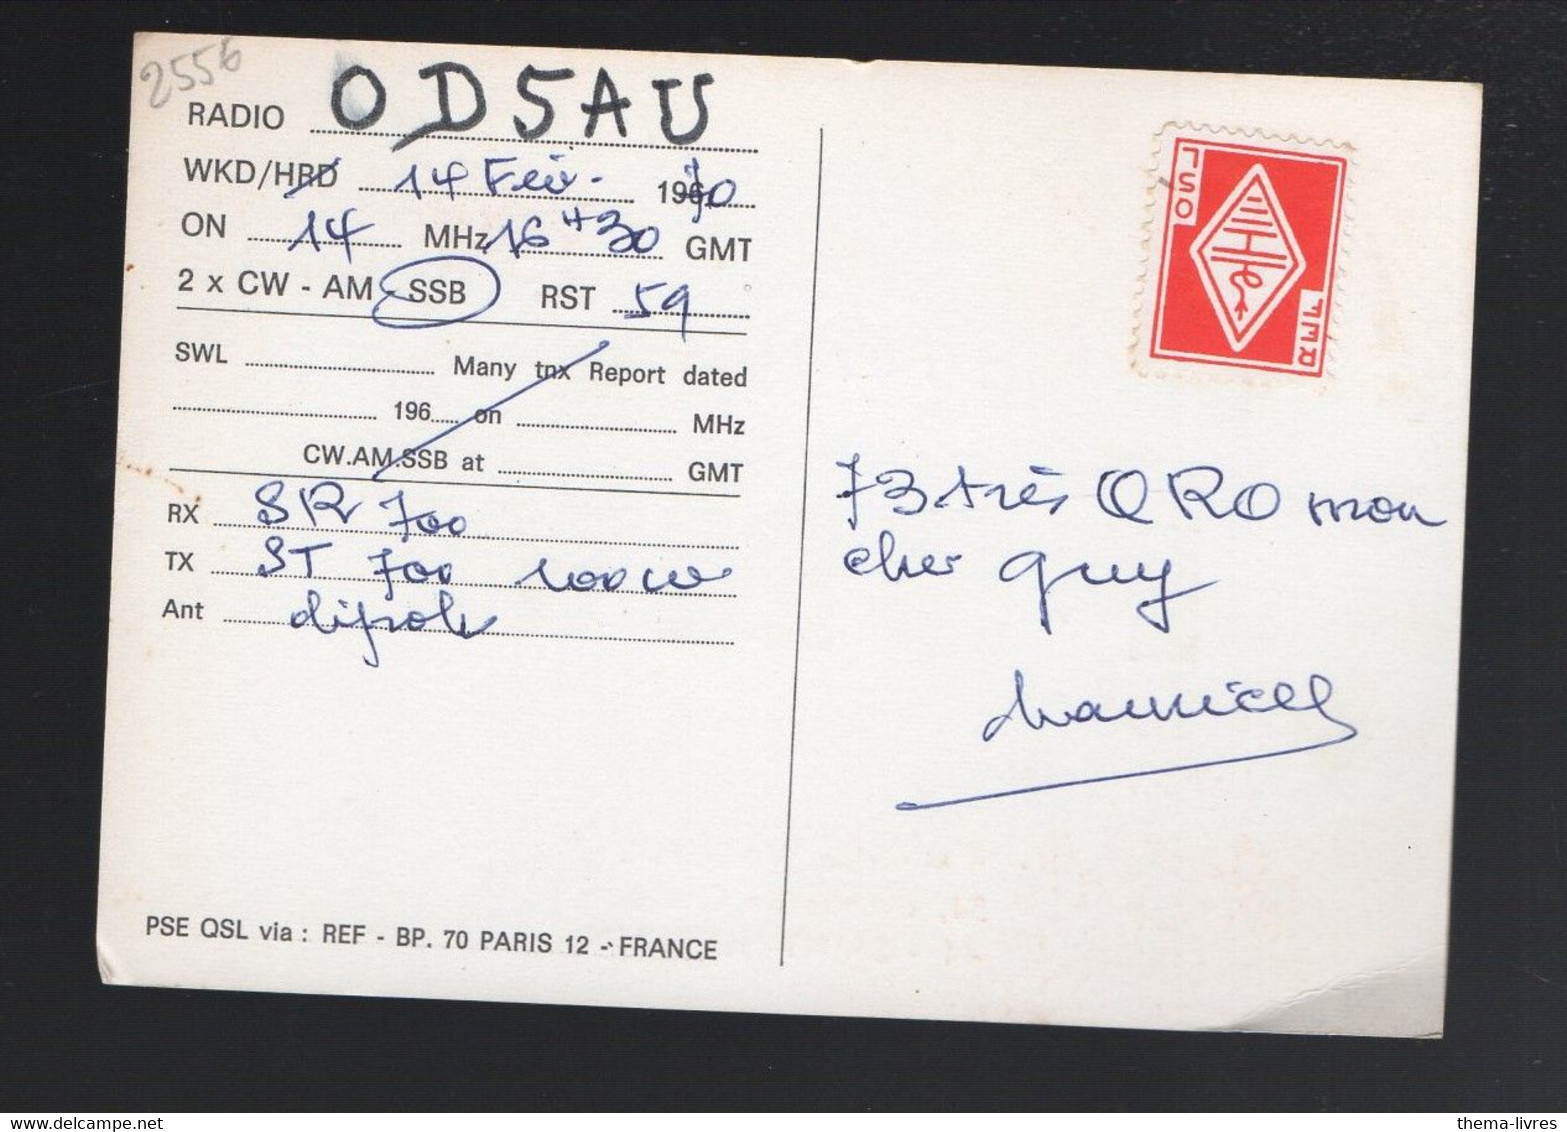 2556
RADIO OD5AU
WKD/HRD 14 Fév. 1970
ON 14 MHz 16H30 GMT
2 x CW - AM - SSB RST 59
SWL Many tnx Report dated
196 on MHz
CW.AM.SSB at GMT
RX SR 700
TX ST 700 100w
Ant dipole
PSE QSL via : REF - BP. 70 PARIS 12 - FRANCE
QSL
REF
73 très QRO mon
cher Guy
Maurice
thema-livres